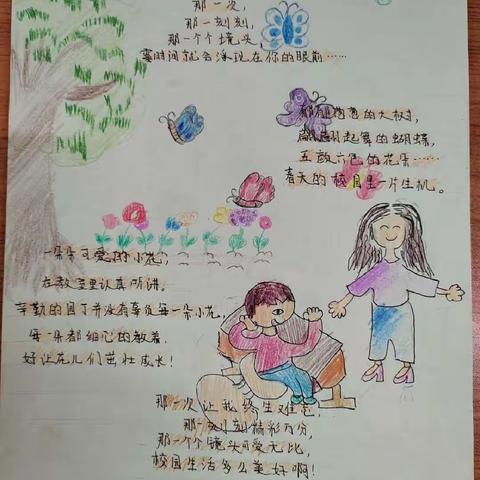 那一次，
那一刻刻，
那一个个镜头，
霎时间就会浮现在你的眼前……
郁郁葱葱的大树，
翩翩起舞的蝴蝶，
五敼六色的花朵……
春天的校园里一片生机。
一朵朵可爱的小花，
在教室里认真听讲。
辛勤的园丁并没有辜负每一朵小花，
每一朵都细心的教着，
好让花儿们茁壮成长！
那一次让我终生难忘，
那一刻刻精彩万分，
那一个个镜头可爱无比，
校园生活多么美好啊！